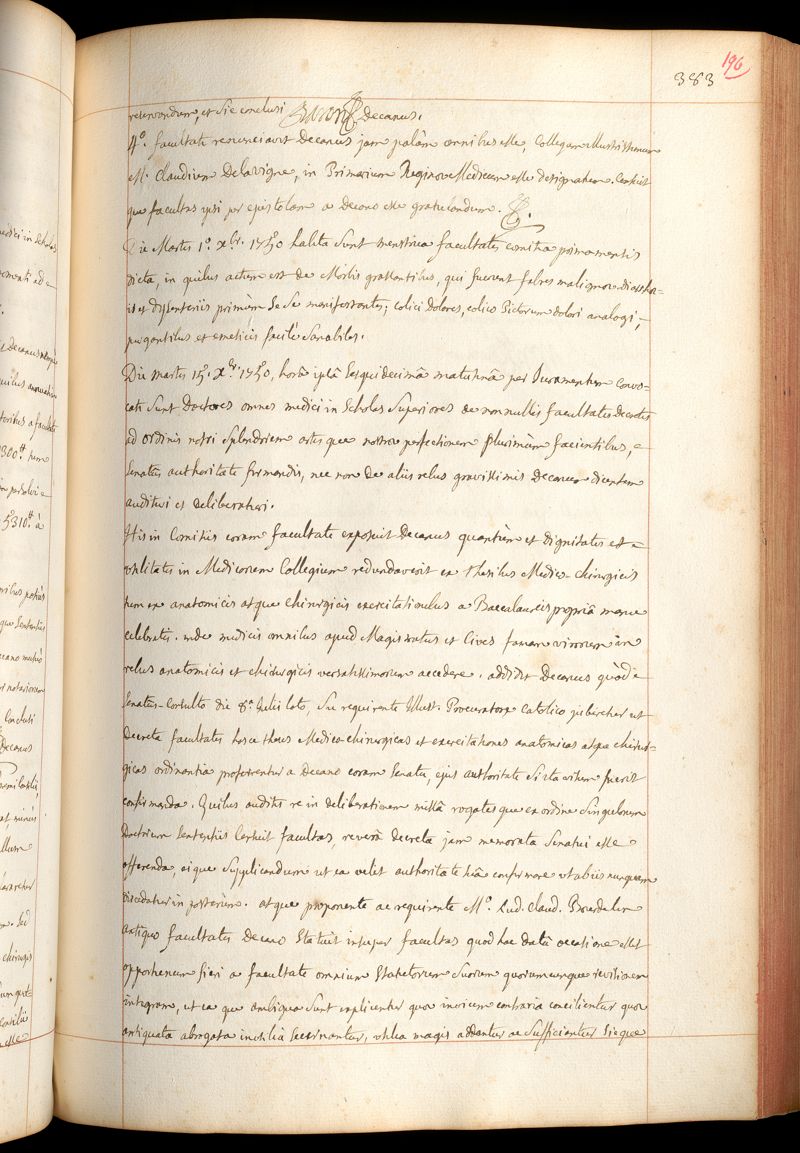 196
383
retinendum, et sic conclusi Baron Decanus.
4º. facultati renunciavit Decanus jam palàm omnibus esse, Collegam illustrissimum
M. Claudium Delavigne, in Primarium Reginae Medicum esse designatum. Censuit
que facultas ipsi per epistolam a Decano esse gratulandum.
Die Martis 1º. Xbr. 1750 habita sunt menstrua facultatis comitia prima mensis
dicta, in quibus actum est de Morbis grassantibus, qui fuerunt febres malignae diarrhae-
is et dysenteriis primùm se se manifestantes; colici dolores, colico Pictorum dolori analogi,
purgantibus et emeticis facilè sanabiles.
Die martis 15º. Xbr. 1750, horâ ipsâ sesquidecimâ matutinâ per Juramentum convo-
cati sunt Doctores omnes medici in Scholas Superiores de nonnullis facultatis Decretis
ad ordinis nostri splendorem artis que nostrae perfectionem plurimùm facientibus,
Senatus authoritate firmandis, nec non de aliis rebus gravissimis Decanum dicentem
audituri et deliberaturi.
His in Comitiis coram facultate exposuit Decanus quantùm et dignitatis et
utilitatis in Medicorum Collegium redundaverit ex thesibus Medico-chirurgicis
tum ex anatomicis atque chirurgicis exercitationibus a Baccalaureis propriâ manu
celebratis. inde medicis omnibus apud Magistratus et Cives famam virorum in
rebus anatomicis et chirurgicis versatissimorum accedere. addidit Decanus quòd
Senatus-Consulto die 8â Julii lato, sic requirente Illust. Procuratore Catolico juberetur ut
Decreta facultatis hasce theses Medico-chirurgicas et exercitationes anatomicas atque chirur-
gicas ordinantia proferrentur a Decano coram Senatu, ejus authoritate si ita visum fuerit
confirmanda. Quibus auditis re in deliberationem missâ rogatis que ex ordine singulorum
Doctorum Sententiis Censuit facultas, reverà decreta jam memorata Senatui esse
offerenda, eique supplicandum ut ea velit authoritate suâ confirmare ut ab iis nunquam
discedatur in posterùm. atque proponente ac requirente Mº. Lud. Claud. Bourdelin
antiquo facultatis Decano Statuit insuper facultas quod hac datâ occasione esset
opportunum fieri a facultate omnium Statutorum suorum quorumcunque revisionem
integram, ut ea que ambigua sunt explicentur quae invicem contraria concilientur quae
antiquata abrogata inutilia secernantur, utilia magis addantur ac sufficiantur sicque